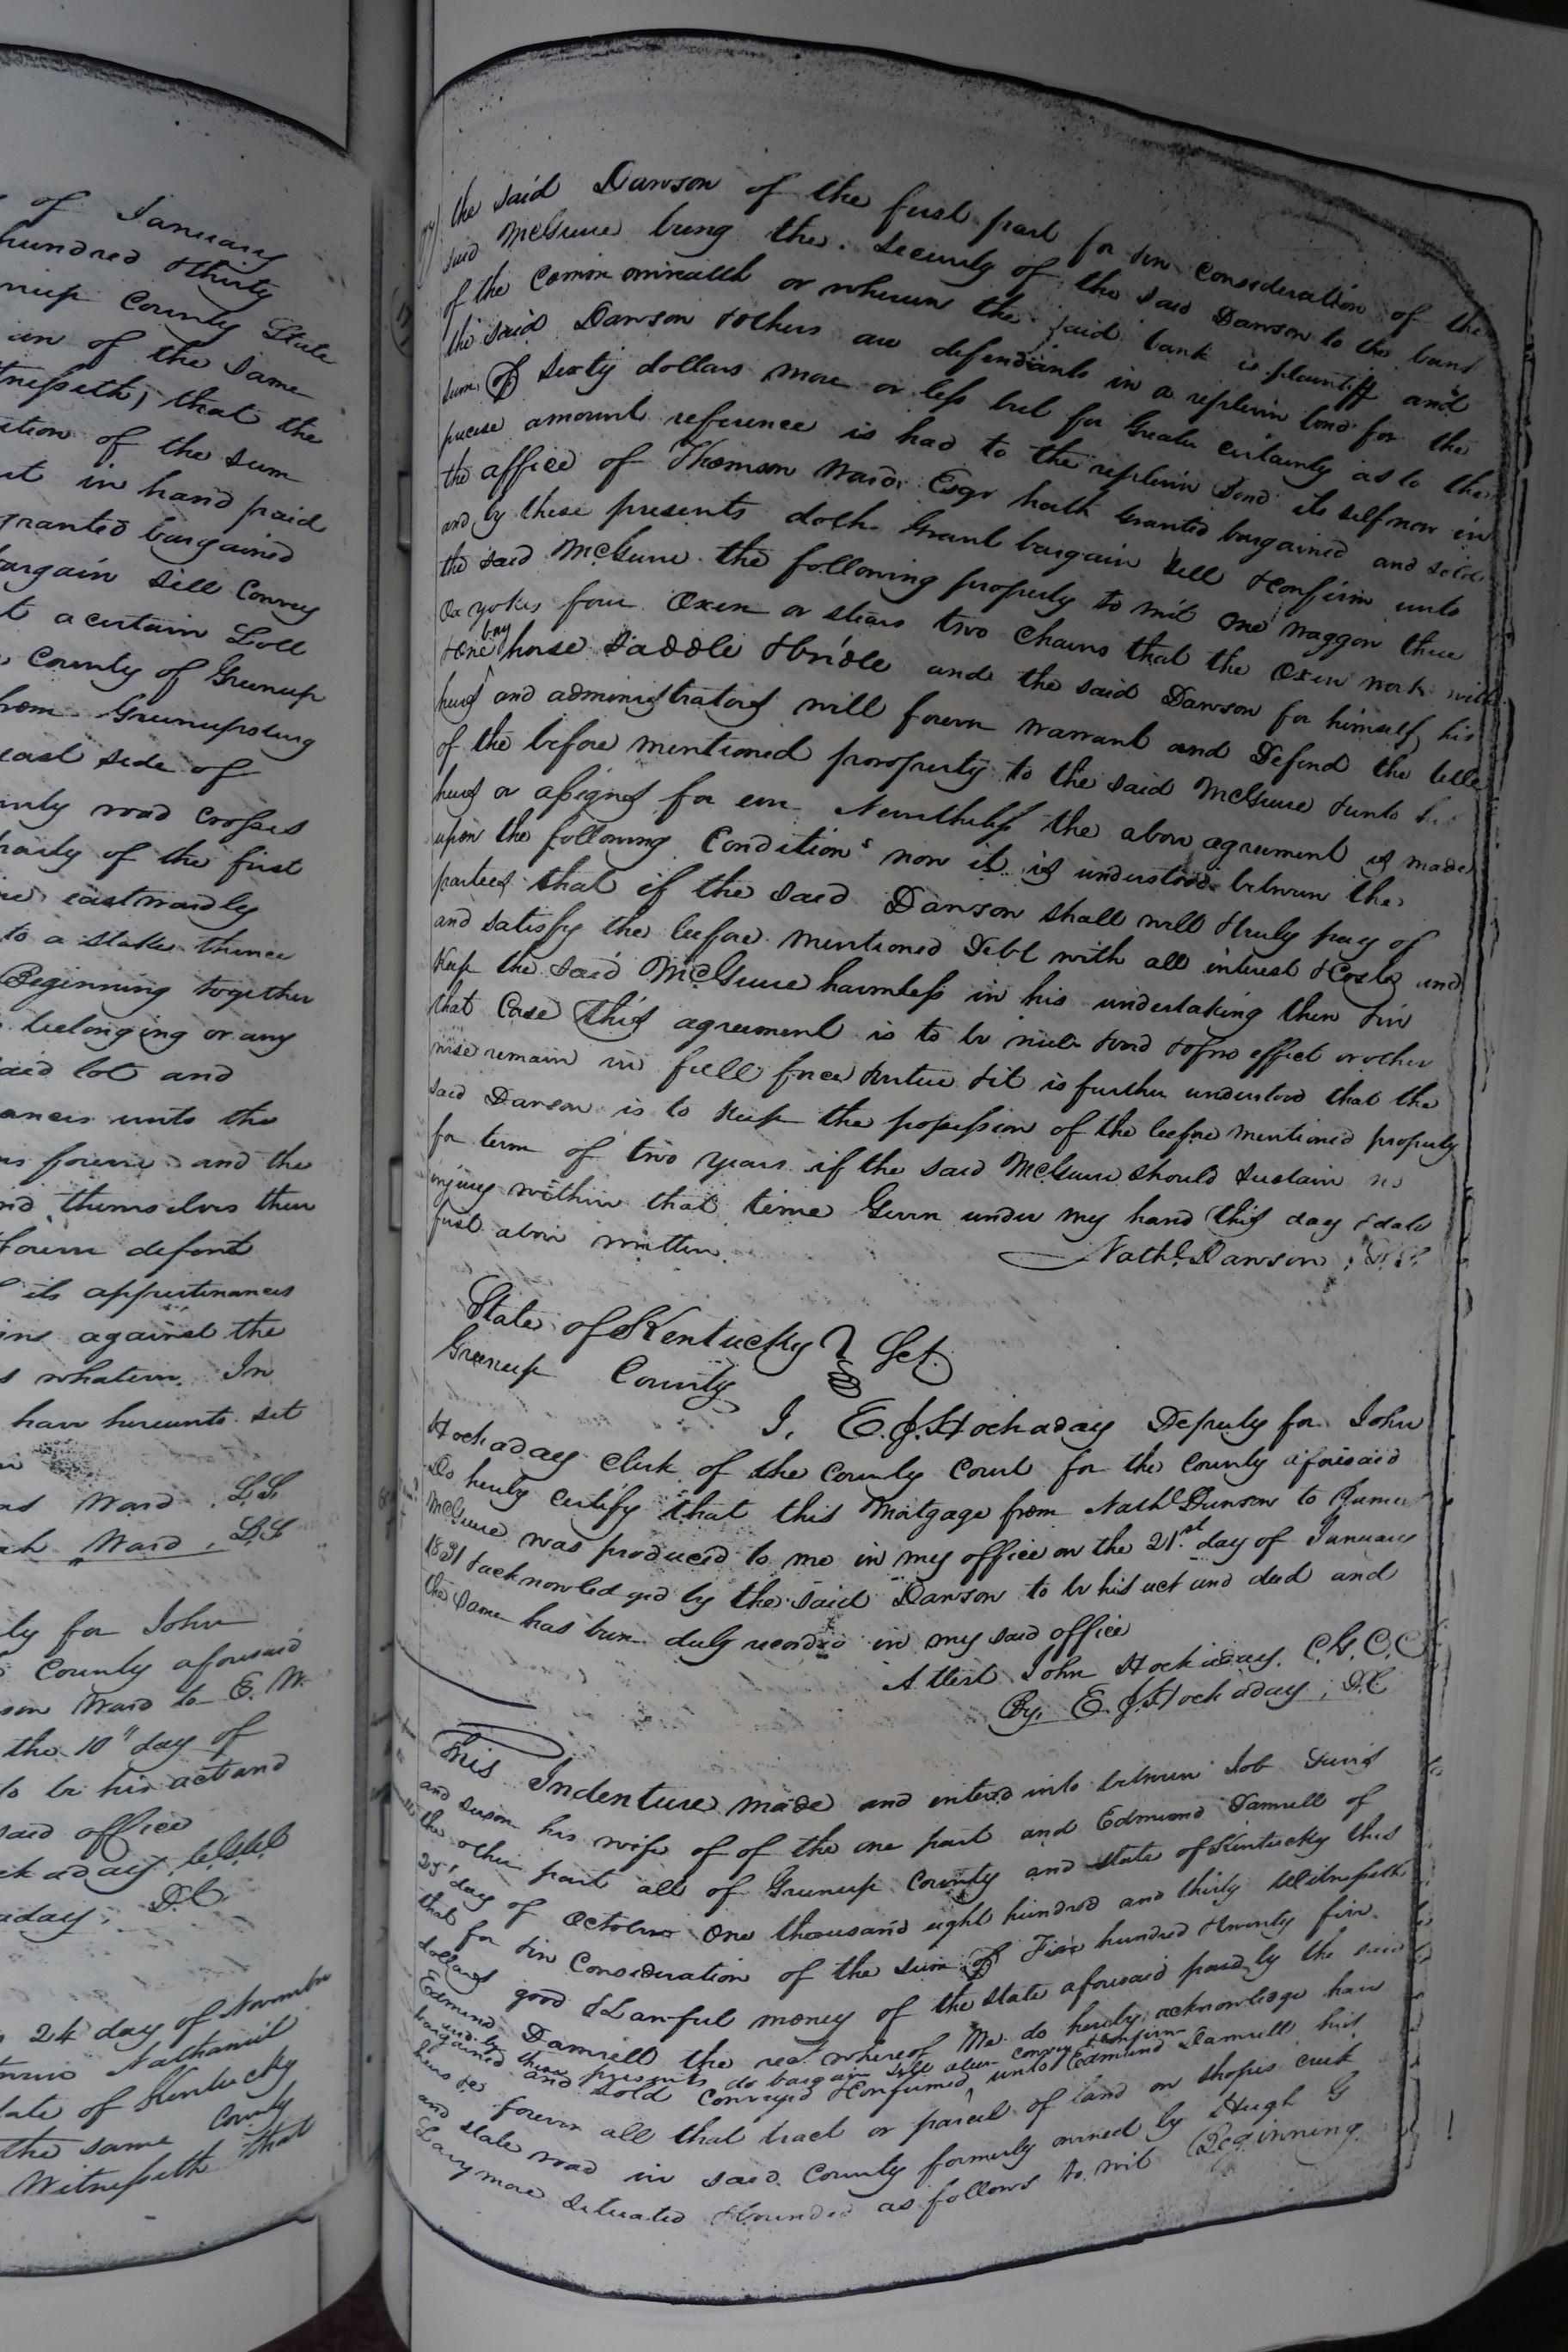 of January
hundred & thirty
County State
an of the same
that the
ition of the sum
in hand paid
granted bargained
bargain sell Convey
t a certain Lott
County of Greenup
from Greenupsburg
east side of
road crosses
party of the first
eastwardly
to a stake thence
Beginning together
belonging or any
said lot and
unto the
and the
themselves their
defend
its appurtinances
against the
whatever. In
have hereunto set
Ward L.S.
Ward L.S.
for John
County aforesaid
Ward to E. W.
the 10" day of
to be his act and
said office
D.C.
24 day of November
Nathaniel
State of Kentucky
the same County
Witnesseth that
the said Dawson of the first part for & in consideration of the
said McGuire being the security of the said Dawson to the bank
of the Common wealth or wherein the said bank is plaintiff and
the said Dawson & others are defendants in a replevin bond for the
sum of sixty dollars more or less but for Greater certainty as to the
precise amount reference is had to the replevin bond its self now in
the office of Thomson Ward Esqr hath Granted bargained and sold
and by these presents doth Grant bargain sell & confirm unto
the said McGuire the following property to wit one waggon three
Ox yokes four Oxen or stears two Chains that the Oxen work with
& one bay horse saddle & bridle and the said Dawson for himself his
heirs and administrators will forever warrant and Defend the title
of the before mentioned proroperty to the said McGuire & unto his
heirs or assigns for ever Nevertheless the above agreement is made
upon the following Conditions now it is understood between the
parties that if the said Dawson shall well & truly pay of
and satisfy the before mentioned Debt with all interest & Costs and
Keep the said McGuire harmless in his undertaking then & in
that Case this agreement is to be null & void & of no effect or other
wise remain in full force & virtue & it is further understood that the
said Dawson is to Keep the possession of the before mentioned property
for term of two years if the said McGuire should sustain no
injury within that time Given under my hand this day & date
first above written
Nathl. Dawson
State of Kentucky } Sct.
Greenup County
I, E. J. Hockaday Deputy for John
Hockaday Clerk of the County Court for the County aforesaid
Do hereby certify that this Mortgage from Nathl Dawson to James
McGuire was produced to me in my office on the 21st. day of January
1831 & acknowledged by the said Dawson to be his act and deed and
the same has been duly recorded in my said office
Attest John Hockaday. C.G.C.C
By, E. J. Hockaday, D.C
This Indenture made and entered into between Job
and Susan his wife of of the one part and Edmund Damrell of
the other part all of Greenup County and state of Kentucky this
25' day of October One thousand eight hundred and thirty Witnesseth
that for & in Consideration of the sum of Five hundred & twenty five
dollars good & Lawful money of the state aforesaid paid by the said
Edmund Damrell the rect. whereof We do hereby acknowledge have
and by these presents do bargain sell alien convey & confirm
bargained and sold conveyed & confirmed unto Edmund Damrell his
heirs &c forever all that tract or parcel of land on Shopes creek
and state road in said County formerly owned by Hugh G
Larymore situated & bounded as follows to wit Beginning